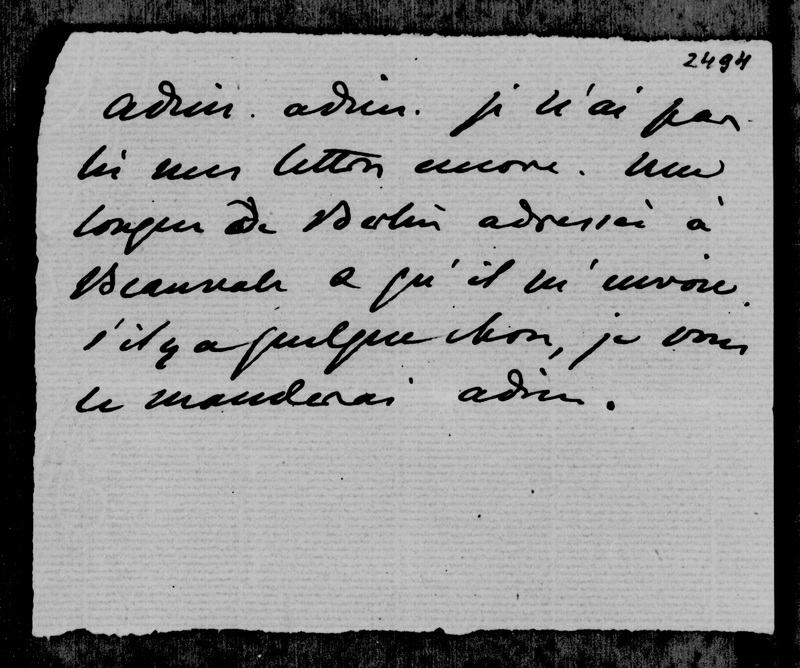 2494
adieu. adieu. je n'ai pas
lu mes lettres encore. Une
longue de Berlin adressée à
Beauvale & qu'il m'envoie.
s'il y a quelque chose, je vous
le manderai adieu.